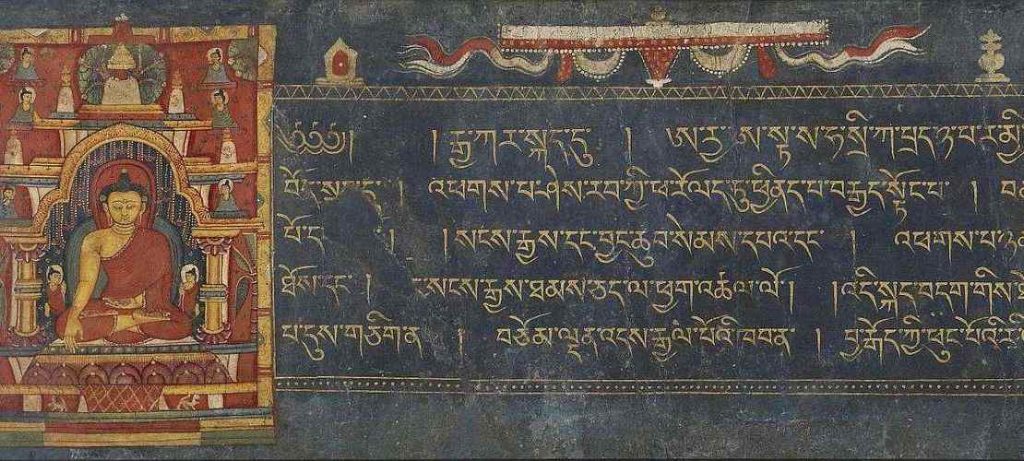 ༄༅༅། །རྒྱ་ཀར་སྐད་དུ། ཨཱརྱ་ཨ་ཥྟ་ས་ཧ་སྲི་ཀ་པྲད་ཉ་པ་ར་མི
བོད་སྐད་དུ། འཕགས་པ་ཤེས་རབ་ཀྱི་ཕ་རོལད་དུ་ཕྱིནད་པ་བརྒྱད་སྟོང་པ། བམ
པོ་ད །སངས་རྒྱས་དང་བྱང་ཆུབ་སེམས་དཔའ་དང་ འཕགས་པ་ཉན
ཐོས་དང་། སངས་རྒྱས་ཐམས་ཅད་ལ་ཕྱག་འཚལ་ལོ། །འདི་སྐད་བདག་གིས་ཐོ
པ་དུས་གཅིག་ན། བཅོམ་ལྡན་འདས་རྒྱལ་པོའི་ཁབ་ན་ །བྱ་རྒོད་ཀྱི་ཕུང་པོའི་རི